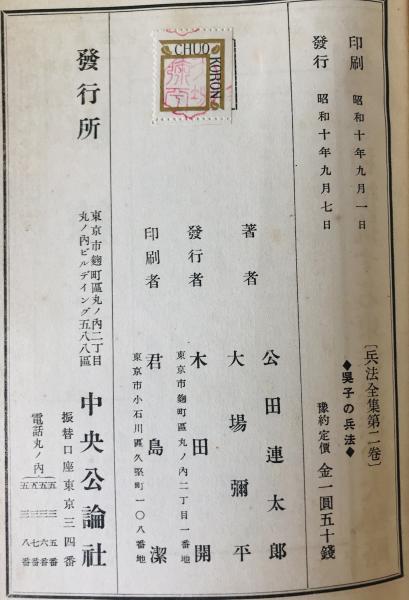 印刷 昭和十年九月一日
發行 昭和十年九月七日
〔兵法全集第二卷〕
◆吳子の兵法◆
豫約定價 金一圓五十錢
CHUO
KORON
著者 公田連太郎
大場彌平
發行者 木田開
東京市麴町區丸ノ內二丁目一番地
印刷者 君島潔
東京市小石川區久堅町一〇八番地
發行所
東京市麴町區丸ノ內二丁目
丸ノ內ビルデイング五八八區
中央公論社
振替口座東京三四番
電話丸ノ內